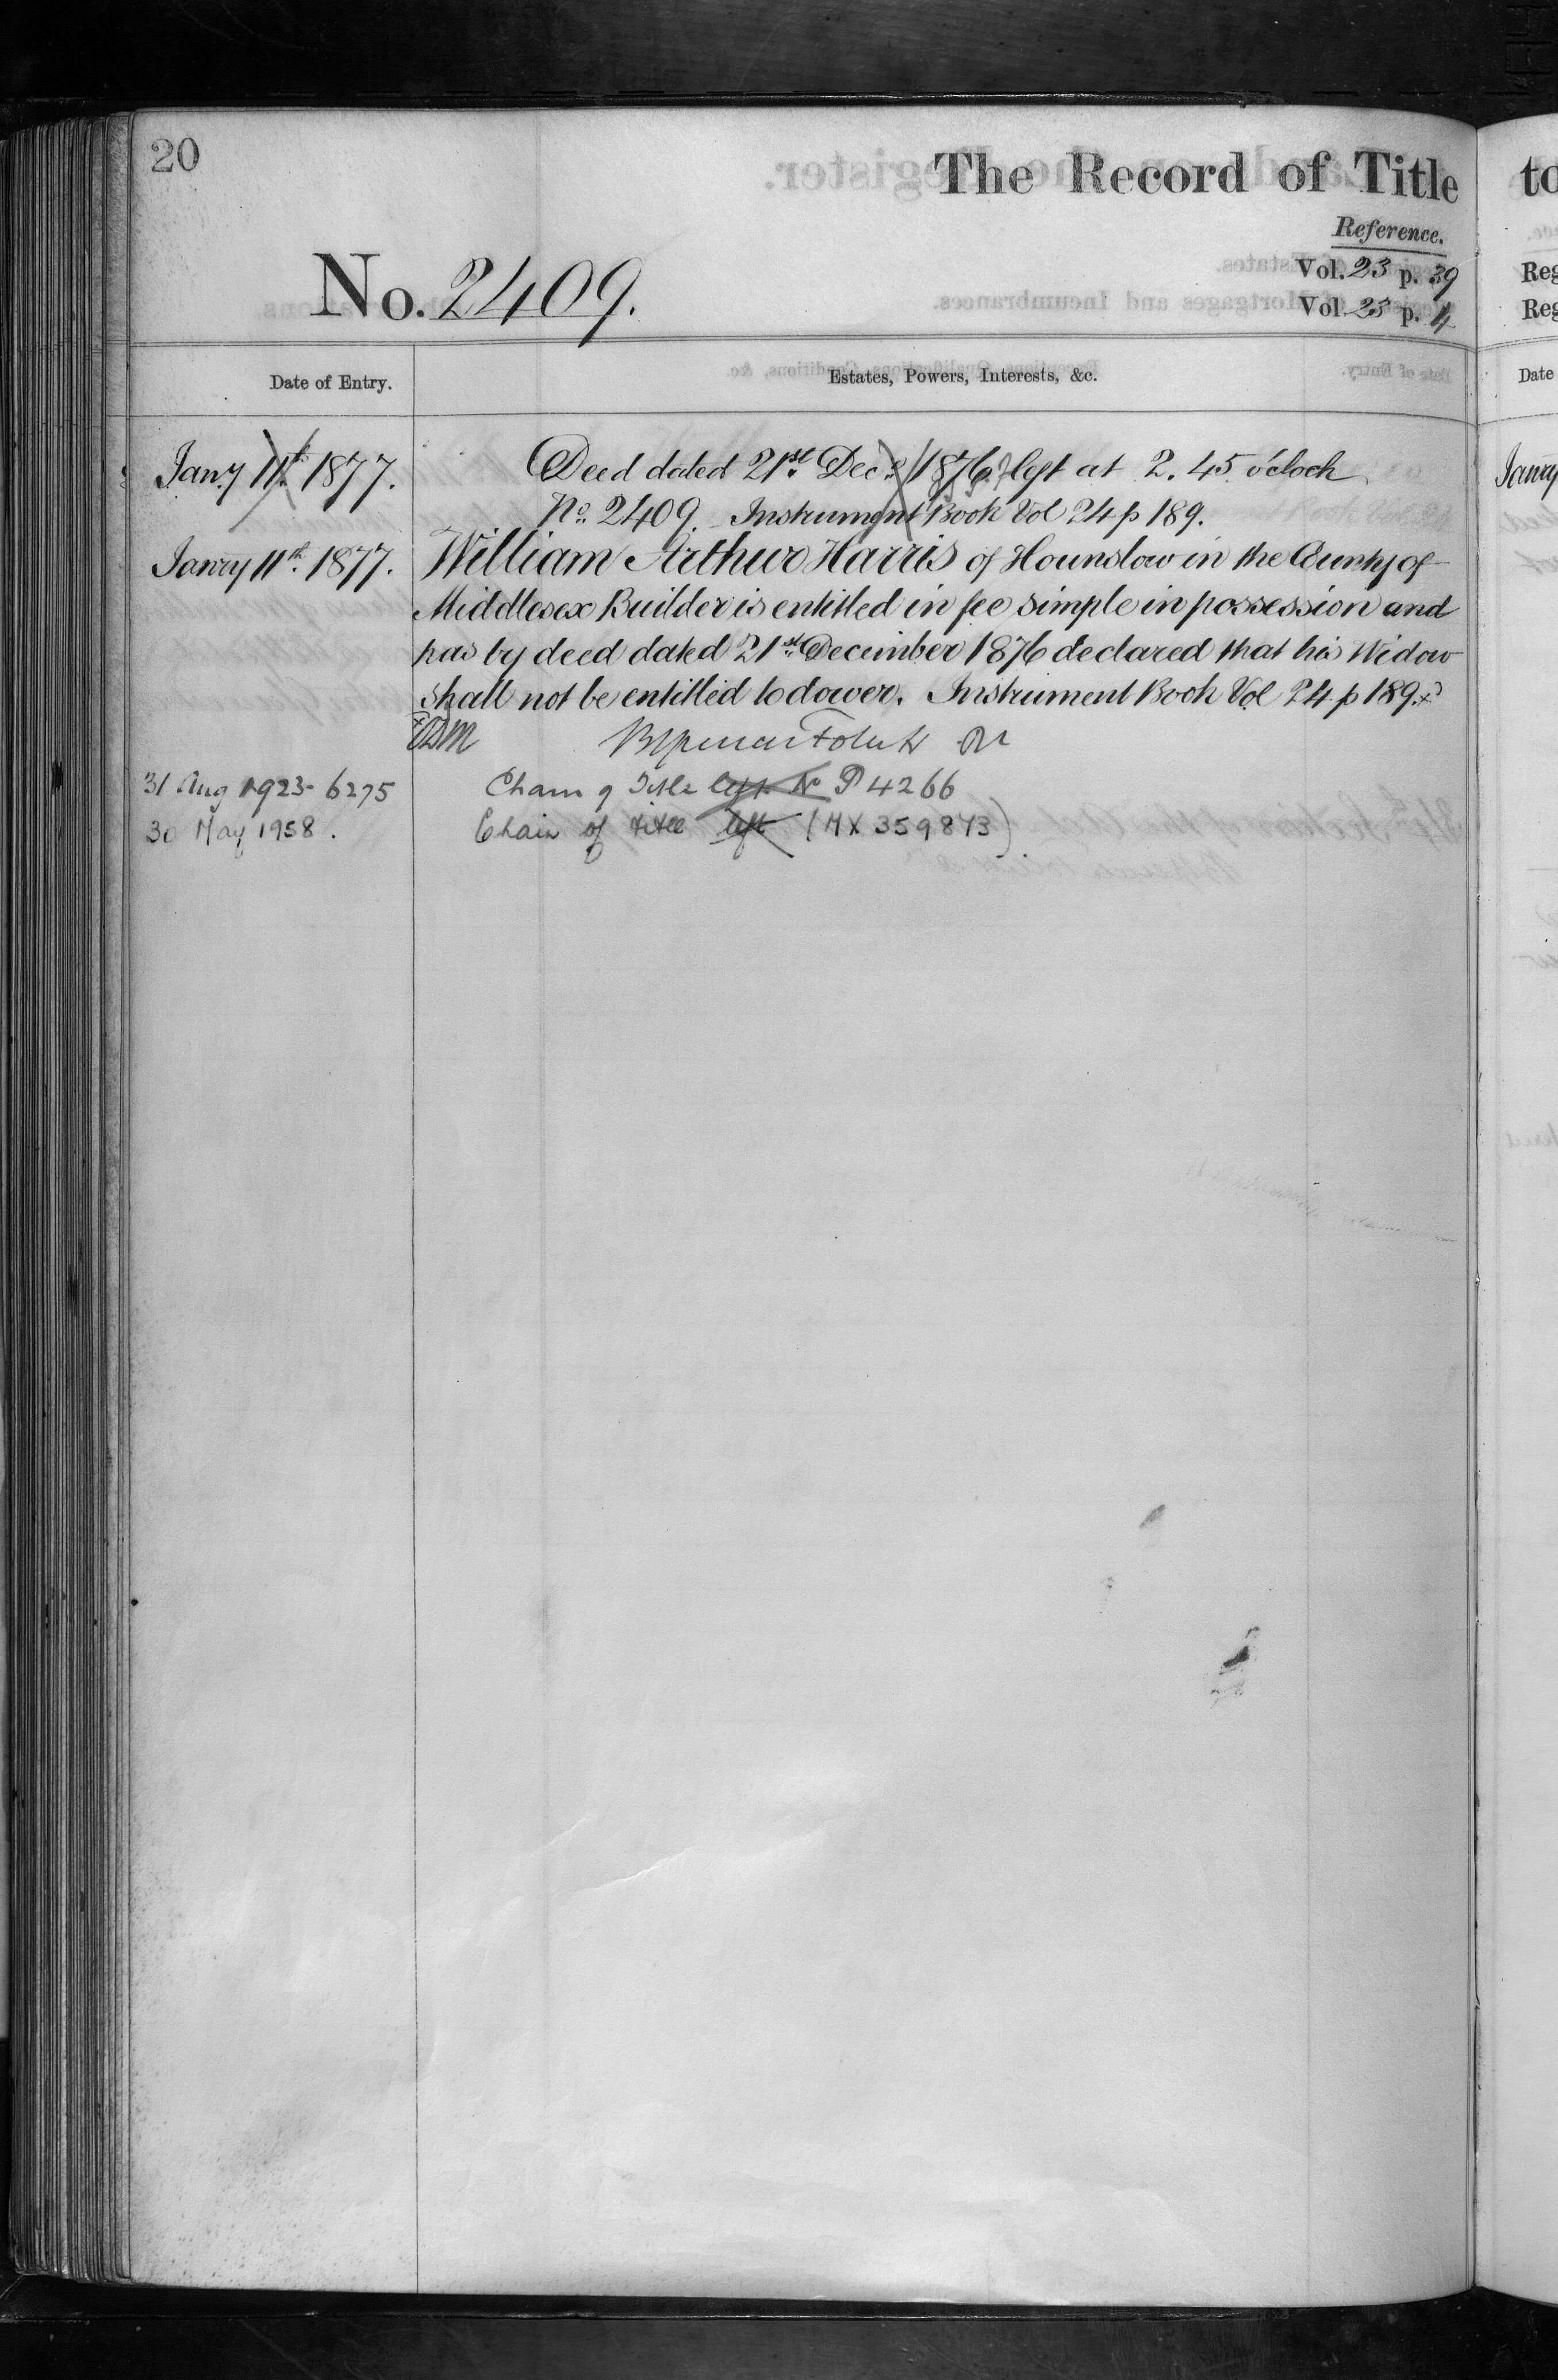 20
The Record of Title
Reference.
No. 2409.
Vol. 23 p. 39
Vol. 23 p. 4
Date of Entry.
Estates, Powers, Interests, &c.
Jany 11th 1877.
Deed dated 21st Decr 1876 left at 2.45 o'clock
No. 2409. Instrument Book Vol 24 p 189.
Janry 11th 1877.
William Arthur Harris of Hounslow in the County of
Middlesex Builder is entitled in fee simple in possession and
has by deed dated 21st December 1876 declared that his Widow
shall not be entitled to dower. Instrument Book Vol 24 p 189.x
31 Aug 1923 - 6275
Chain of Title left No P 4266
30 May 1958.
Chain of title left (MX 359873)
to
Reg
Reg
Date
Janry